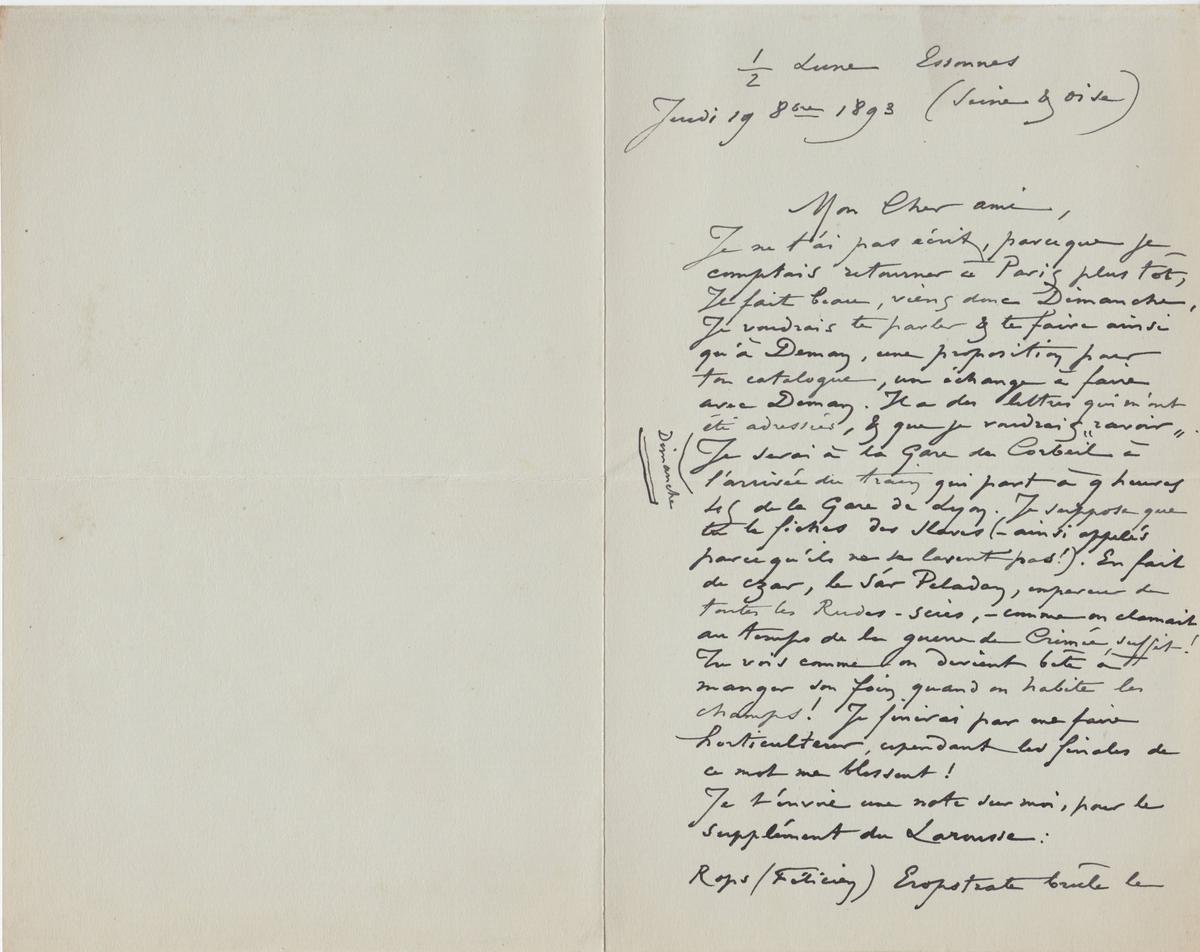 1/2 Lune Essonnes
Jeudi 19 8bre 1893 (Seine & Oise)
Mon Cher ami,
Je ne t'ai pas écrit, parceque je
comptais retourner à Paris plus tôt,
Il fait beau, viens donc Dimanche,
Je voudrais te parler & te faire ainsi
qu'à Deman, une proposition pour
ton catalogue, un échange à faire
avec Deman. Il a des lettres qui m'ont
été adressées, & que je voudrais "ravoir".
Dimanche
Je serai à la Gare de Corbeil à
l'arrivée du train qui part à 9 heures
45 de la Gare de Lyon. Je suppose que
tu te fiches des slaves (- ainsi appelés
parcequ'ils ne se lavent pas!). En fait
de czar, le Sâr Peladan, empereur de
toutes les Rudes-scies, - comme on clamait
au temps de la guerre de Crimée, suffit!
Tu vois comme on devient bête à
manger son foin quand on habite les
champs! Je finirai par me faire
horticulteur, cependant les finales de
ce mot me blessent!
Je t'envoie une note sur moi, pour le
supplément du Larousse:
Rops (Félicien) Eropstrate brûle le